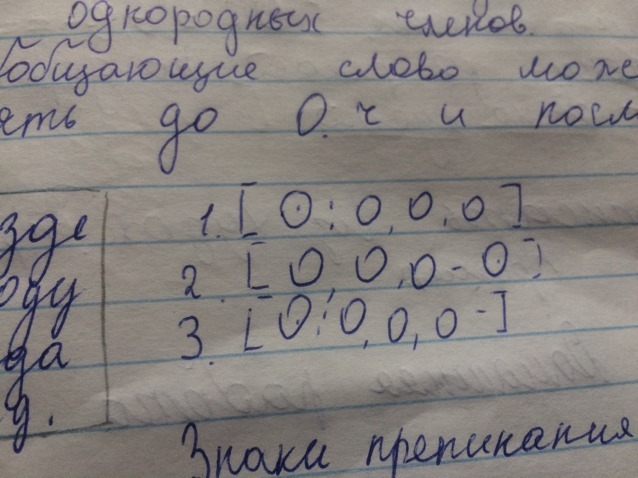 однородных членов.
общающие слово може
ять до О.ч и посл
зде 1. [ О : О, О, О ]
оду 2. [ О, О, О - О ]
да 3. [ О : О, О, О - ]
д.
Знаки препинания